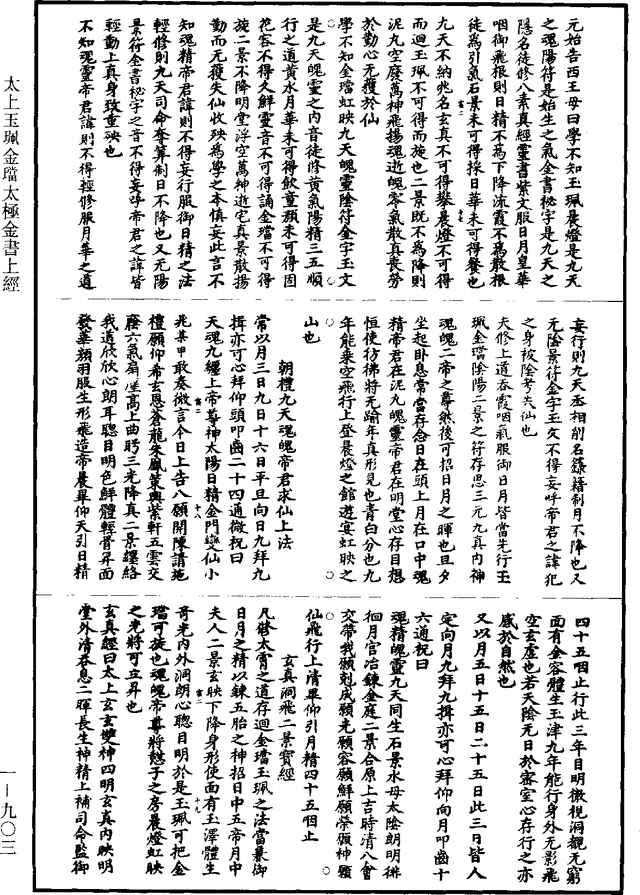 元始告西王母曰學不知玉珮晨燈是九天
之魂陽符是始生之氣金書祕字是九天之
隱名徒修八素真經靈書紫文服日月皇華
咽御飛根則日精不為下降流霞不為散根
徒為引氣石景未可得採日華未可得餐也
九天不納兆名玄真不可得攀晨燈不可得
而迴玉珮不可得而旋也二景既不為降則
泥丸空廢萬神飛揚魂逝魄零氣散真喪勞
於勤心无獲於仙
學不知金璫虹映九天魄靈陰符金字玉文
是九天魄靈之內音徒修黃氣陽精三五順
行之道黃水月華未可得飲童顏未可得固
花容不得久鮮靈音不可得誦金璫不可得
旋二景不降明堂浮空萬神逝宅真景散揚
勤而无獲失仙收殃為學之本慎妄此言不
知魂精帝君諱則不得妄行服御日精之法
輕修則九天司命奪筭制日不降也又无陽
景符金書秘字之音不得妄呼帝君之諱皆
輕動上真身致重殃也
不知魂靈帝君諱則不得輕修服月華之道
妄行則九天丞相削名錄籍制月不降也又
无陰景符金字玉文不得妄呼帝君之諱犯
之身被陰考失仙也
夫修上道吞霞咽氣服御日月皆當先行玉
珮金璫陰陽二景之符存思三元九真內神
魂魄二帝之尊然後可招日月之暉也旦夕
坐起卧息常當存念日在頭上月在口中魂
精帝君在泥丸魄靈帝君在明堂心存目想
恒使彷彿將无踰年真形見也青白分也九
年能乘空飛行上登晨燈之館遊宴虹映之
山也
朝禮九天魂魄帝君求仙上法
常以月三日九日十六日平旦向日九拜九
揖亦可心拜仰頭叩齒二十四通微祝曰
天魂九纏上帝尊神太陽日精金門變仙小
兆某甲敢奏微言今日上告八願開陳請施
禮願仰希玄恩蒼龍朱鳳策輿紫軒五雲交
廕六氣扇座高上曲眄三光降真二景纏絡
我道欣欣心朗耳聰目明色鮮體輕骨昇面
發華顏羽服生形飛造帝晨畢仰天引日精
四十五咽止行此三年目明徹視洞觀无窮
面有金容體生玉津九年能行身外无影飛
空玄虛也若天陰无日於密室心存行之亦
感於自然也
又以月五日十五日二十五日此三日皆人
定向月九拜九揖亦可心拜仰向月叩齒十
六通祝曰
魂精魄靈九天同生石景水母太陰朗明徘
徊月宮冶鍊金庭二景合原上吉時清八會
交帶我願剋成願光願容願鮮願榮願神願
仙飛行上清畢仰引月精四十五咽止
玄真洞飛二景寶經
凡修太霄之道存迴金璫玉珮之法當兼御
日月之精以鍊五胎之神招日中五帝月中
夫人二景玄映下降身形使面有玉澤體生
奇光內外洞朗心聰目明於是玉珮可把金
璫可旋也魂魄帝尊將憇子之房晨燈虹映
之光將可立昇也
玄真經曰太上玄玄雙神四明玄真內映明
堂外清吞息二暉長生神精上補司命監御
太上玉珮金璫太極金書上經
一–九〇三